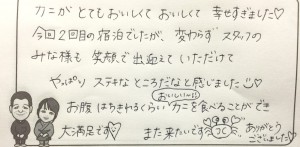 カニがとてもおいしくておいしくて 幸せすぎました♡
今回2回目の宿泊でしたが、変わらず スタッフの
みな様も 笑顔で出迎えて いただけて
やっぱり ステキな ところだなと感じました♡
お腹 はちきれるくらい おいしい カニを食べることができ
大満足です♡ また来たいです ありがとう
ございました♡